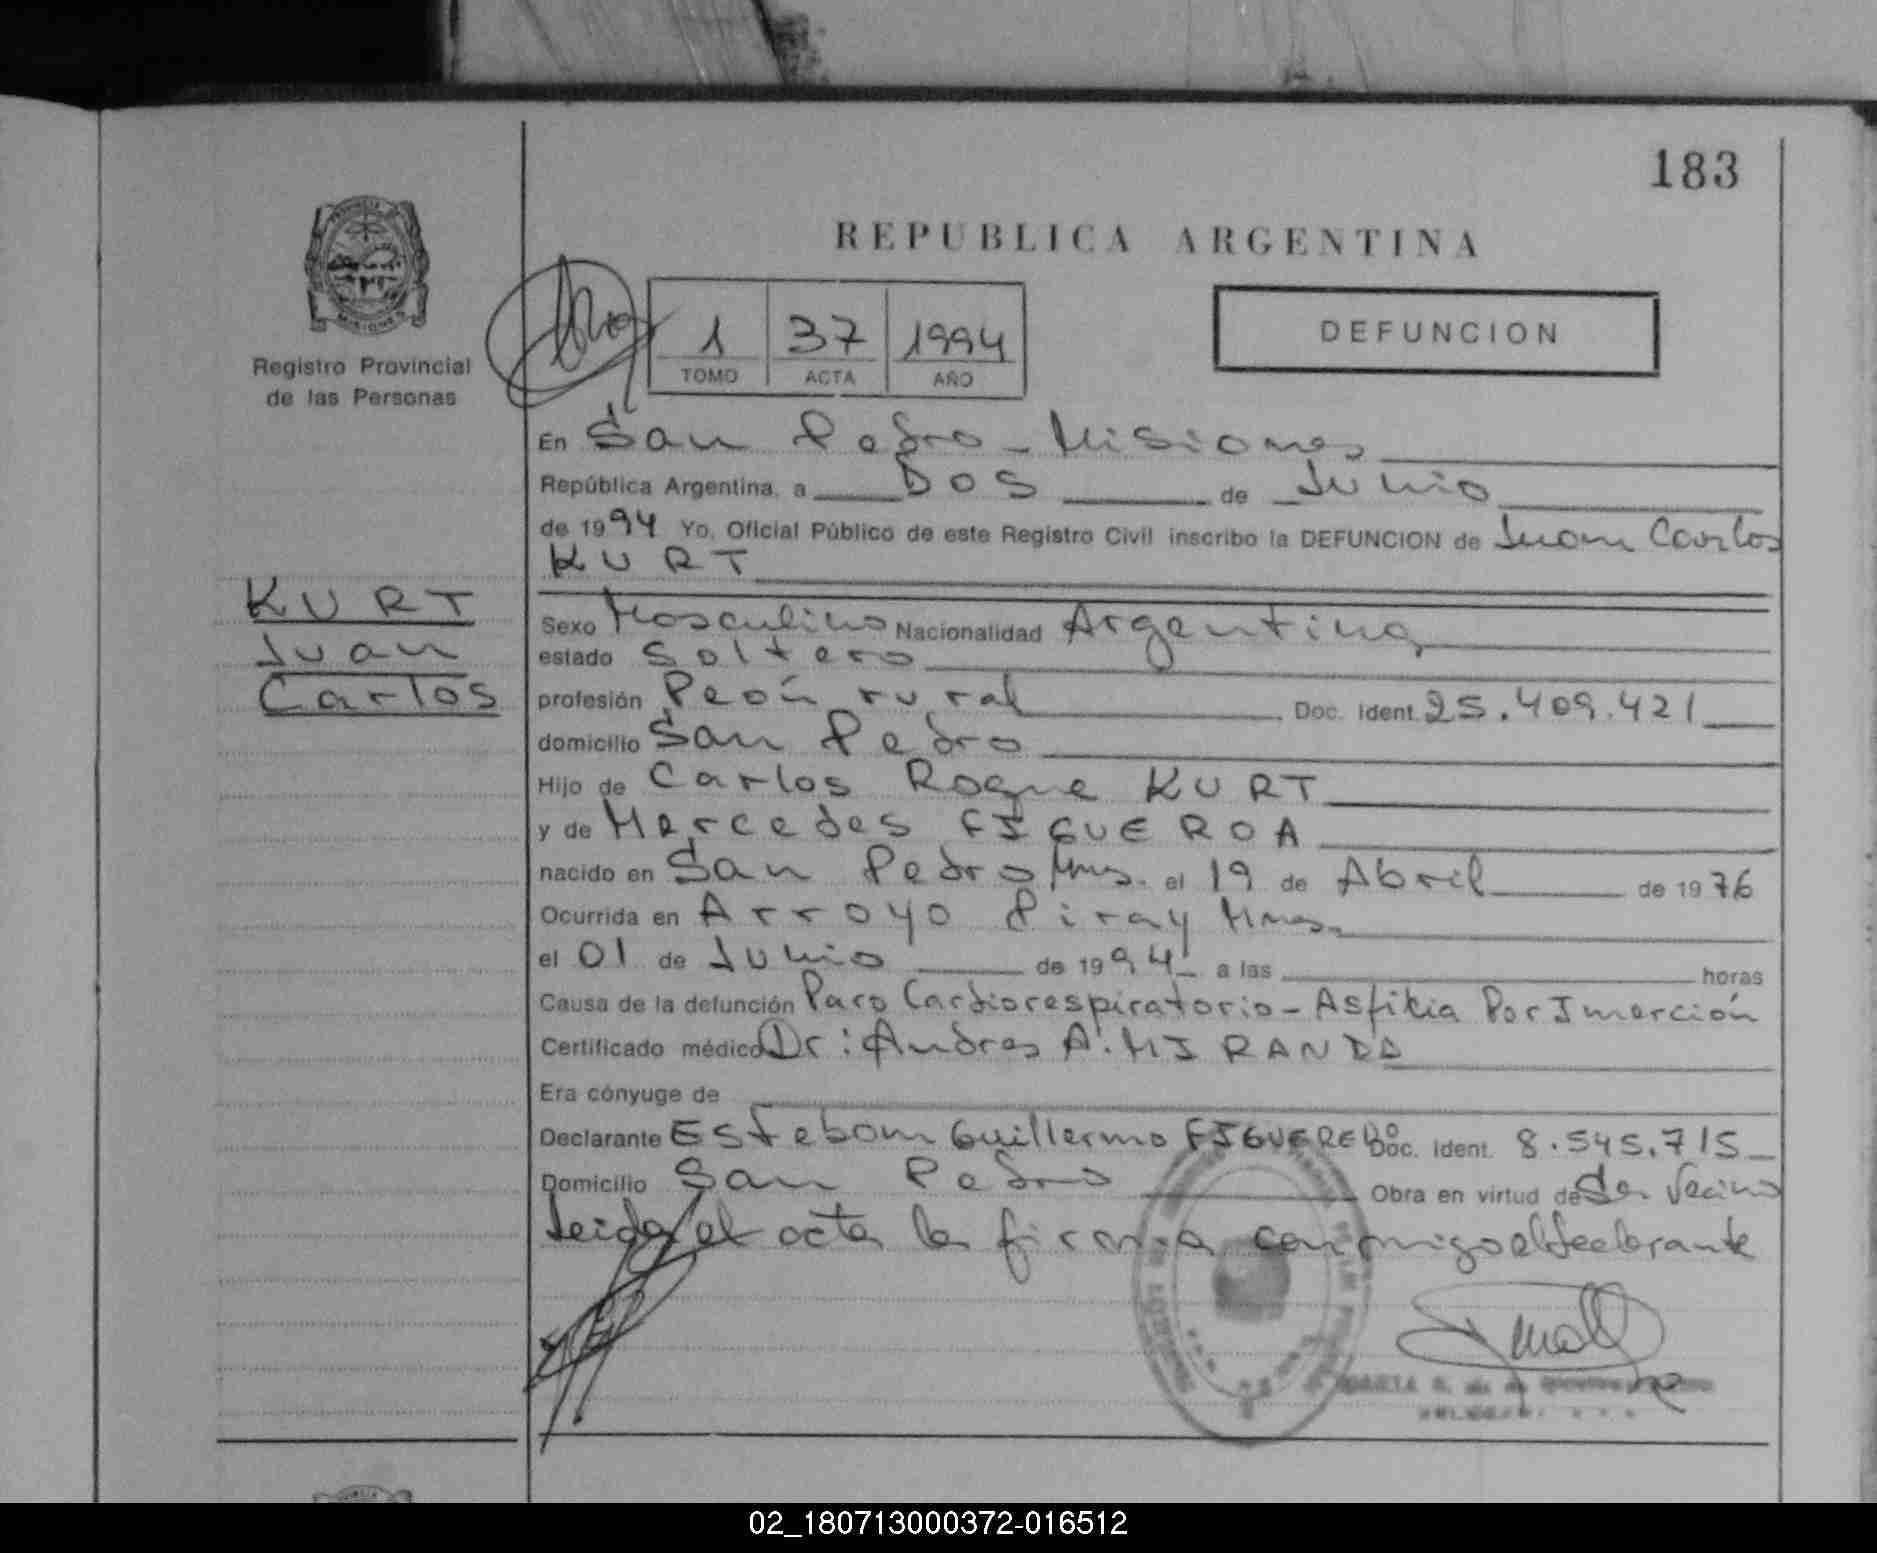 183
REPUBLICA ARGENTINA
PROVINCIA DE
MISIONES
Registro Provincial
de las Personas
1 37 1994
TOMO ACTA AÑO
DEFUNCION
En San Pedro - Misiones
República Argentina, a Dos de Junio
de 1994 Yo, Oficial Público de este Registro Civil inscribo la DEFUNCION de Juan Carlos
KURT
KURT
Juan
Carlos
Sexo Masculino Nacionalidad Argentina
estado Soltero
profesión Peón rural Doc. Ident. 25.409.421
domicilio San Pedro
Hijo de Carlos Roque KURT
y de Mercedes FIGUEROA
nacido en San Pedro Mnes. el 19 de Abril de 1976
Ocurrida en Arroyo Piray Mnes.
el 01 de Junio de 1994 a las horas
Causa de la defunción Paro Cardiorespiratorio - Asfikia Por Imerción
Certificado médico Dr: Andres A. MIRANDA
Era cónyuge de
Declarante Esteban Guillermo FIGUEREDO Doc. Ident. 8.545.715
Domicilio San Pedro Obra en virtud de Ser Vecino
Leida el acta la firma conmigo el declarante
02_180713000372-016512